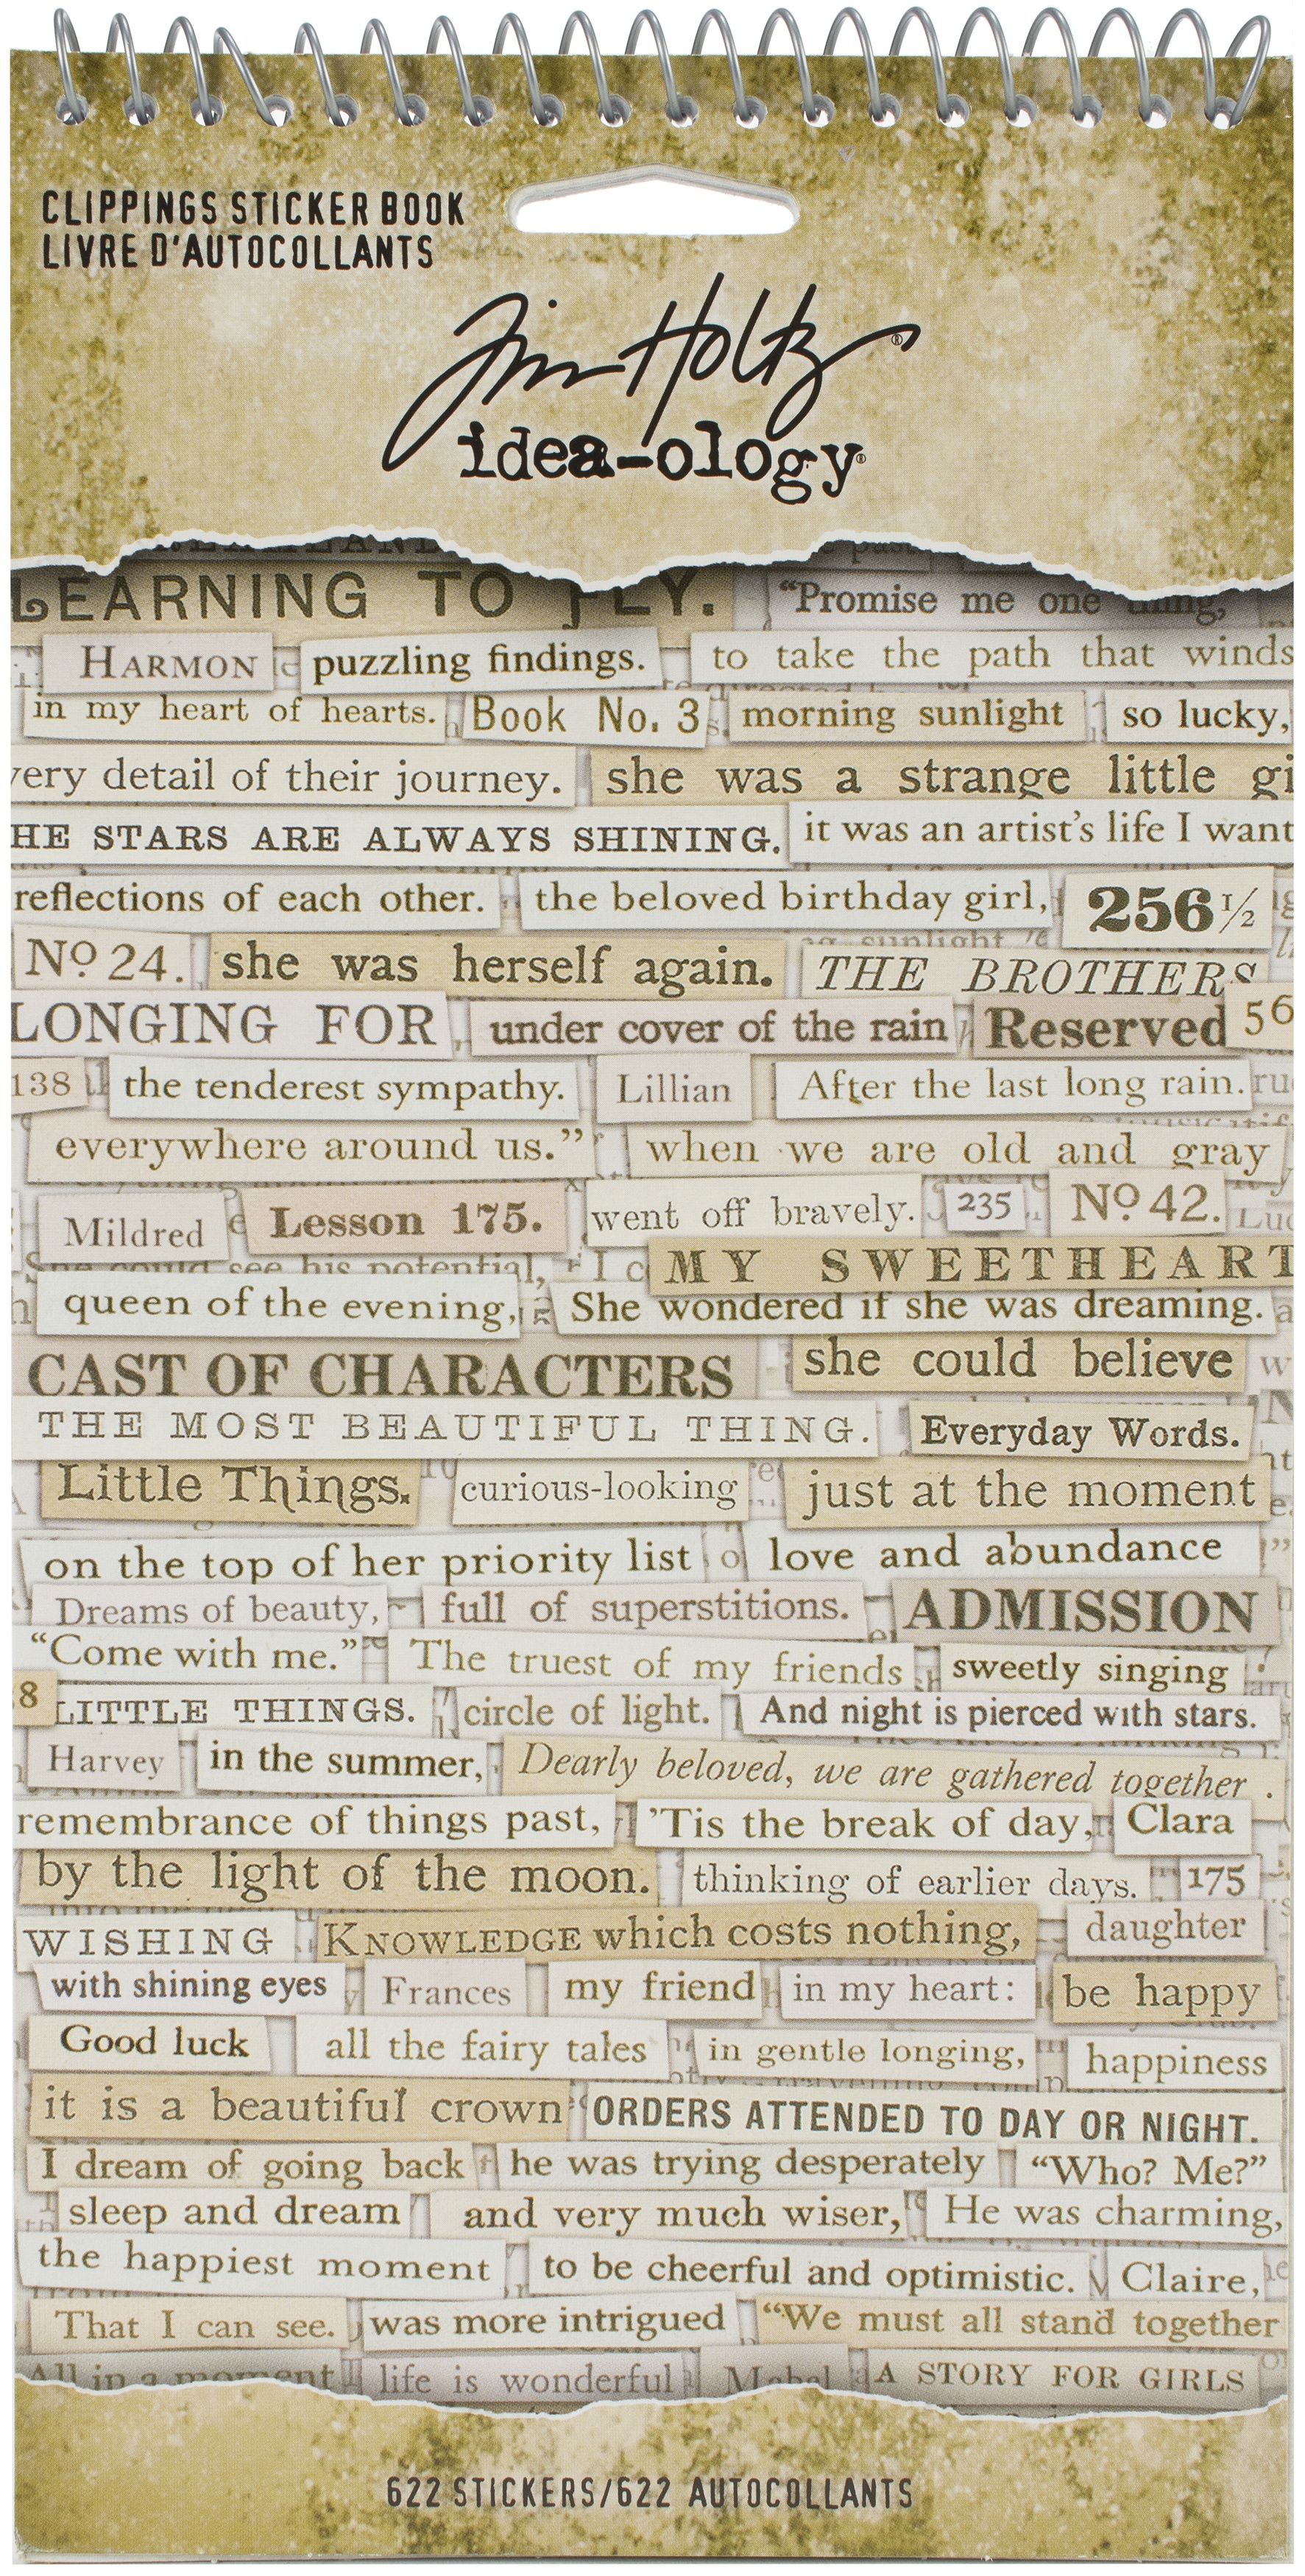 CLIPPINGS STICKER BOOK
LIVRE D'AUTOCOLLANTS
Tim Holtz®
idea-ology®
LEARNING TO FLY. "Promise me one thing,
HARMON puzzling findings. to take the path that winds
in my heart of hearts. Book No. 3 morning sunlight so lucky,
very detail of their journey. she was a strange little gi
HE STARS ARE ALWAYS SHINING. it was an artist's life I want
reflections of each other. the beloved birthday girl, 256 1/2
No 24. she was herself again. THE BROTHERS
LONGING FOR under cover of the rain Reserved 56
138 the tenderest sympathy. Lillian After the last long rain.
everywhere around us." when we are old and gray
Mildred Lesson 175. went off bravely. 235 No 42.
She could see his potential, I c MY SWEETHEART
queen of the evening, She wondered if she was dreaming.
CAST OF CHARACTERS she could believe
THE MOST BEAUTIFUL THING. Everyday Words.
Little Things. curious-looking just at the moment
on the top of her priority list love and abundance
Dreams of beauty, full of superstitions. ADMISSION
"Come with me." The truest of my friends sweetly singing
8 LITTLE THINGS. circle of light. And night is pierced with stars.
Harvey in the summer, Dearly beloved, we are gathered together .
remembrance of things past, 'Tis the break of day, Clara
by the light of the moon. thinking of earlier days. 175
WISHING KNOWLEDGE which costs nothing, daughter
with shining eyes Frances my friend in my heart: be happy
Good luck all the fairy tales in gentle longing, happiness
it is a beautiful crown ORDERS ATTENDED TO DAY OR NIGHT.
I dream of going back he was trying desperately "Who? Me?"
sleep and dream and very much wiser, He was charming,
the happiest moment to be cheerful and optimistic. Claire,
That I can see. was more intrigued "We must all stand together
All in a moment life is wonderful Mabel A STORY FOR GIRLS
622 STICKERS/622 AUTOCOLLANTS